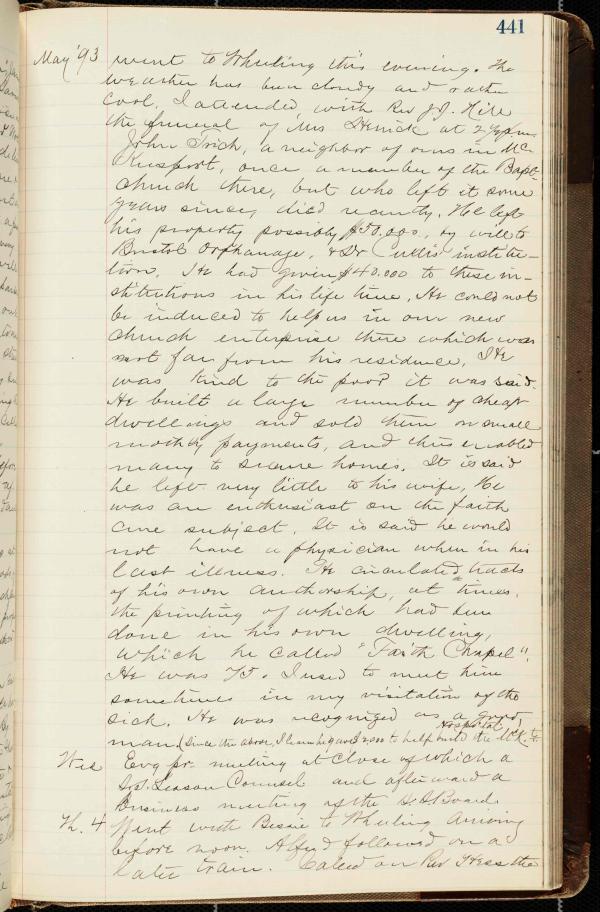 441
May '93 went to Wheeling this evening. The
weather has been cloudy and rather
cool. I attended, with Rev J.J. Hill
the funeral of Mrs at 2 pm
John Trich, a neighbor of ours in Mc-
Keesport, once a member of the Bapt
church there, but who left it some
years since, died recently. He left
his property possibly $50.000, by will to
Bristol Orphanage, & Dr Cullis' institu-
tion. He had given $40.000 to these in-
stitutions in his life time. He could not
be induced to help us in our new
church enterprise there which was
not far from his residence. He
was kind to the poor it was said.
He built a large number of cheap
dwellings and sold them on small
monthly payments, and this enabled
many to secure homes. It is said
he left very little to his wife. He
was an enthusiast on the faith
cure subject. It is said he would
not have a physician when in his
last illness. He circulated tracts
of his own authorship, at times,
the printing of which had been
done in his own dwelling,
which he called "Faith Chapel".
He was 75. I used to meet him
sometimes in my visitation of the
sick. He was recognized as a good
man. (Since the above, I learn he gave $2,000 to help build the McK. Hospital)
Wed Evg pr. meeting at close of which a
S.S. Lesson Counsel and afterward a
Business meeting of the Board
Th. 4 Went with Bessie to Wheeling arriving
before noon. Alfred followed on a
later train. Called on Rev Hess the